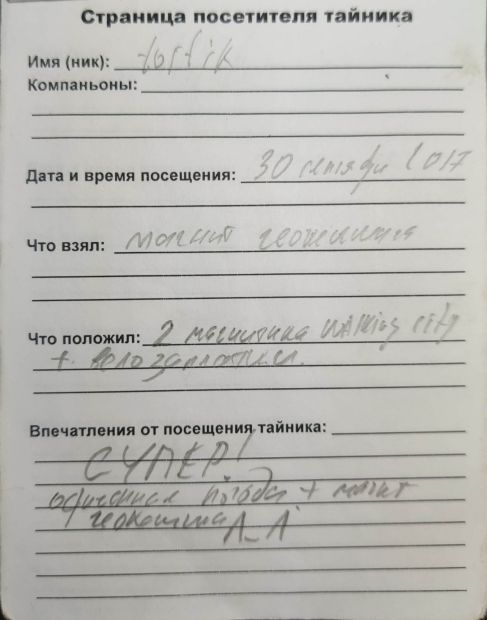 Страница посетителя тайника
Имя (ник):
Компаньоны:
Дата и время посещения: 30 сентября 2017
Что взял: магнит геокешинга
Что положил: 2 магнитика Walking city
+ велозаплатки.
Впечатления от посещения тайника:
СУПЕР!
погода + магнит
геокешинга Λ_Λ